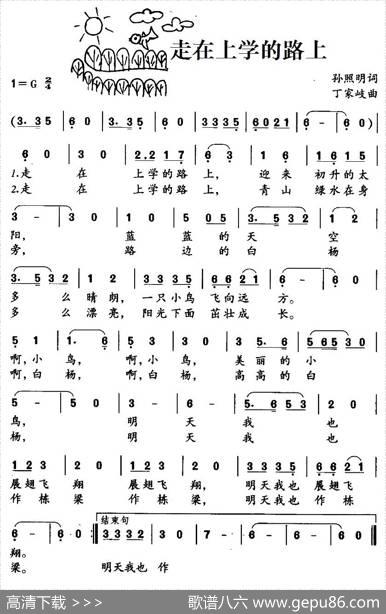 走在上学的路上
1=G 2/4
孙照明词
丁家岐曲
(3. 35 | 60 | 30 | 3335 | 6021 | 6 - | 60) |
60 30 | 2.217 | 63 | 16 | 1615 |
1.走 在 上学的路 上, 迎来 初升的太
2.走 在 上学的路 上, 青山 绿水在身
3 - | 30 | 10 | 505 | 3. 532 | 12 |
阳, 蓝 蓝的 天 空
旁, 路 边的 白 杨
3. 532 | 12 | 3335 | 6621 | 6 - | 60 |
多 么晴朗,一只小鸟 飞向远 方。
多 么漂亮,阳光下面 茁壮成 长。
51 | 1. 6 | 53 | 3. 6 | 5165 | 56530 |
啊,小 鸟, 啊,小 鸟, 美丽 的小
啊,白 杨, 啊,白 杨, 高高 的白
5 - | 50 | 30 | 30 | 5. 653 | 20 |
鸟, 明 天 我 也
杨, 明 天 我 也
123 | 20 | 123 | 20 | 3335 | 6621 |
展翅飞 翔 展翅飞 翔, 明天我也 展翅飞
作栋 梁 作栋 梁, 明天我也 作栋
6 - | 60 :| 结束句 3332 | 30 | 7 - | 6 - | 6 - | 60 ||
翔。
梁。 明天我也 作
高清下载 >>>
歌谱八六 www.gepu86.com